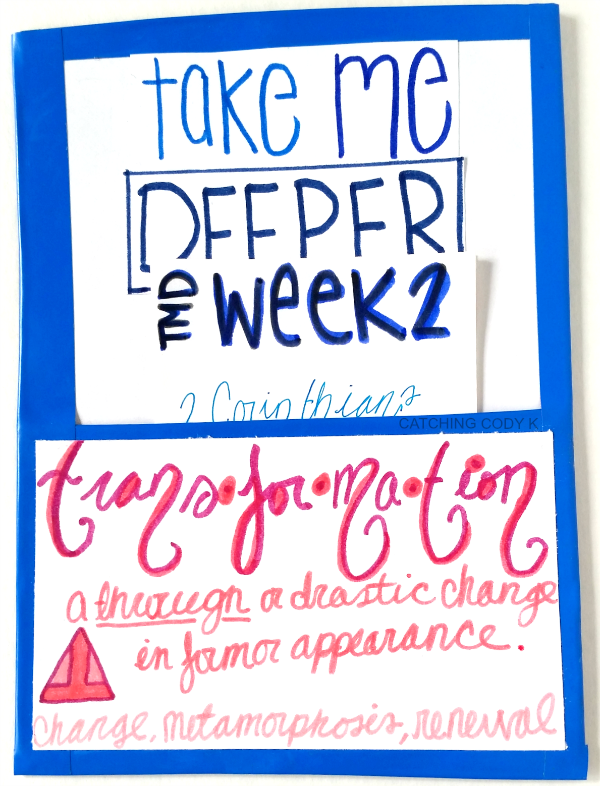 take me
DEEPER
TMD week 2
2 Corinthians
CATCHING CODY K
trans•for•ma•tion
a through or drastic change
in form or appearance.
change, metamorphosis, renewal